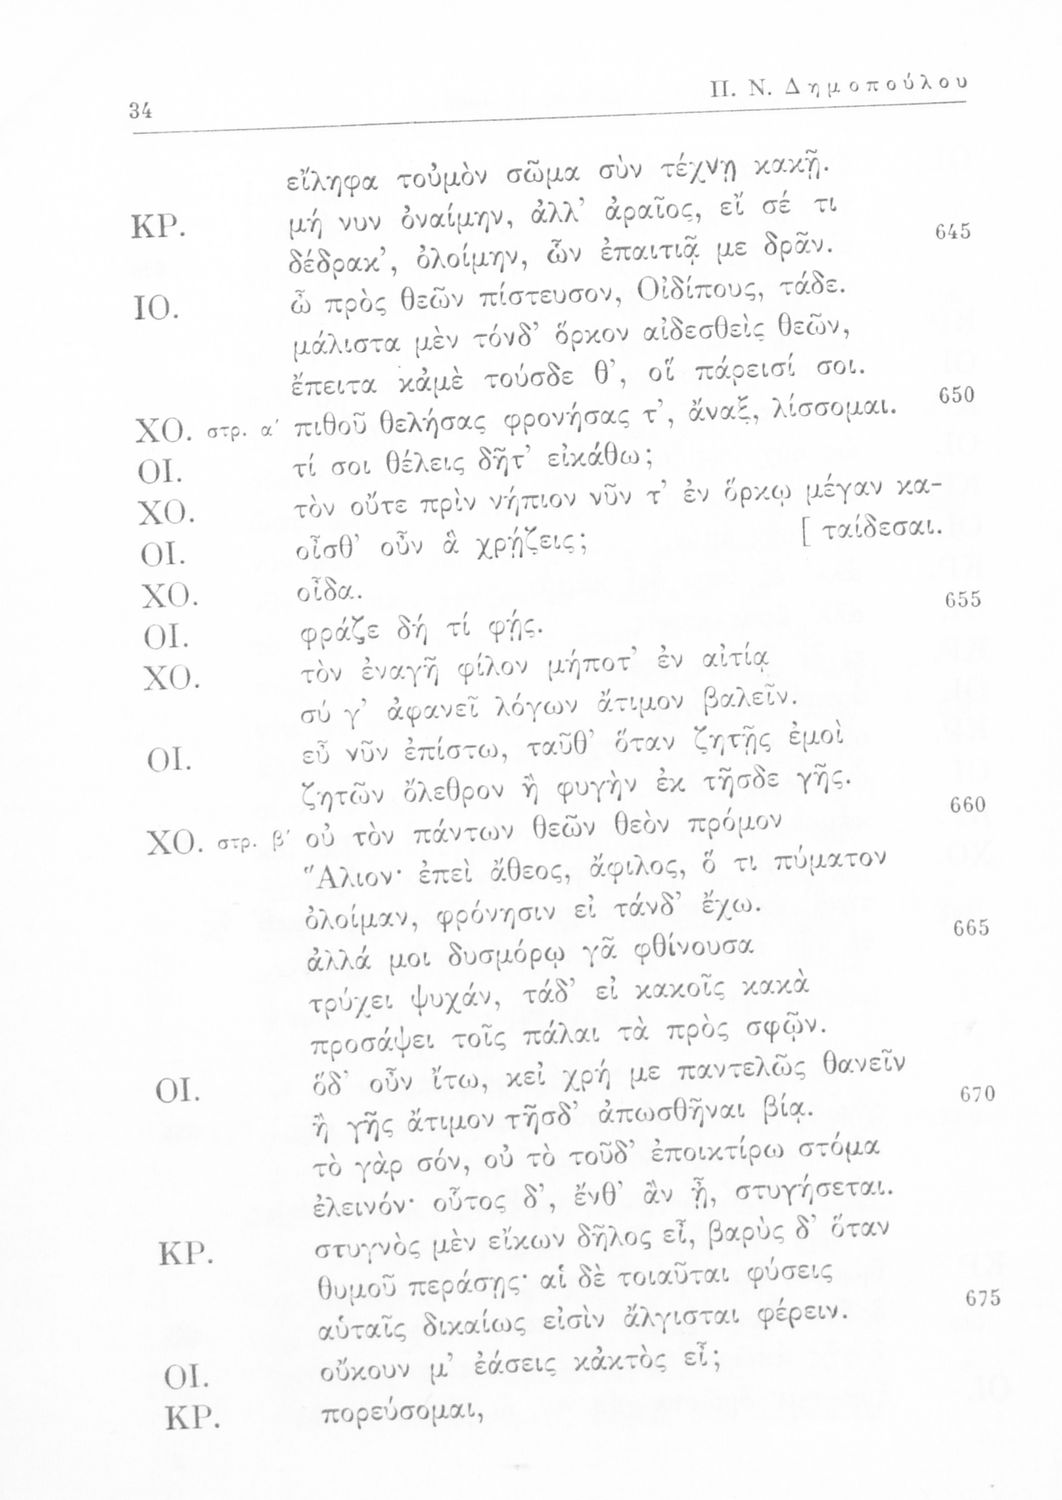 34
Π. Ν. Δημοπούλου
εἴληφα τοὐμὸν σῶμα σὺν τέχνῃ κακῇ.
ΚΡ. μή νυν ὀναίμην, ἀλλ’ ἀραῖος, εἴ σέ τι
δέδρακ’, ὀλοίμην, ὧν ἐπαιτιᾷ με δρᾶν. 645
ΙΟ. ὦ πρὸς θεῶν πίστευσον, Οἰδίπους, τάδε.
μάλιστα μὲν τόνδ’ ὅρκον αἰδεσθεὶς θεῶν,
ἔπειτα κἀμὲ τούσδε θ’, οἵ πάρεισί σοι.
ΧΟ. στρ. α΄ πιθοῦ θελήσας φρονήσας τ’, ἄναξ, λίσσομαι. 650
ΟΙ. τί σοι θέλεις δῆτ’ εἰκάθω;
ΧΟ. τὸν οὔτε πρὶν νήπιον νῦν τ’ ἐν ὅρκῳ μέγαν κα-
ΟΙ. οἶσθ’ οὖν ἃ χρῄζεις; [ ταίδεσαι.
ΧΟ. οἶδα. 655
ΟΙ. φράζε δή τί φῄς.
ΧΟ. τὸν ἐναγῆ φίλον μήποτ’ ἐν αἰτίᾳ
σύ γ’ ἀφανεῖ λόγων ἄτιμον βαλεῖν.
ΟΙ. εὖ νῦν ἐπίστω, ταῦθ’ ὅταν ζητῇς ἐμοὶ
ζητῶν ὄλεθρον ἢ φυγὴν ἐκ τῆσδε γῆς.
ΧΟ. στρ. β΄ οὐ τὸν πάντων θεῶν θεὸν πρόμον 660
Ἅλιον· ἐπεὶ ἄθεος, ἄφιλος, ὅ τι πύματον
ὀλοίμαν, φρόνησιν εἰ τάνδ’ ἔχω.
ἀλλά μοι δυσμόρῳ γᾶ φθίνουσα 665
τρύχει ψυχάν, τάδ’ εἰ κακοῖς κακὰ
προσάψει τοῖς πάλαι τὰ πρὸς σφῷν.
ΟΙ. ὅδ’ οὖν ἴτω, κεἰ χρή με παντελῶς θανεῖν
ἢ γῆς ἄτιμον τῆσδ’ ἀπωσθῆναι βίᾳ. 670
τὸ γὰρ σόν, οὐ τὸ τοῦδ’ ἐποικτίρω στόμα
ἐλεινόν· οὗτος δ’, ἔνθ’ ἂν ᾖ, στυγήσεται.
ΚΡ. στυγνὸς μὲν εἴκων δῆλος εἶ, βαρὺς δ’ ὅταν
θυμοῦ περάσῃς· αἱ δὲ τοιαῦται φύσεις
αὑταῖς δικαίως εἰσὶν ἄλγισται φέρειν. 675
ΟΙ. οὔκουν μ’ ἐάσεις κἀκτὸς εἶ;
ΚΡ. πορεύσομαι,